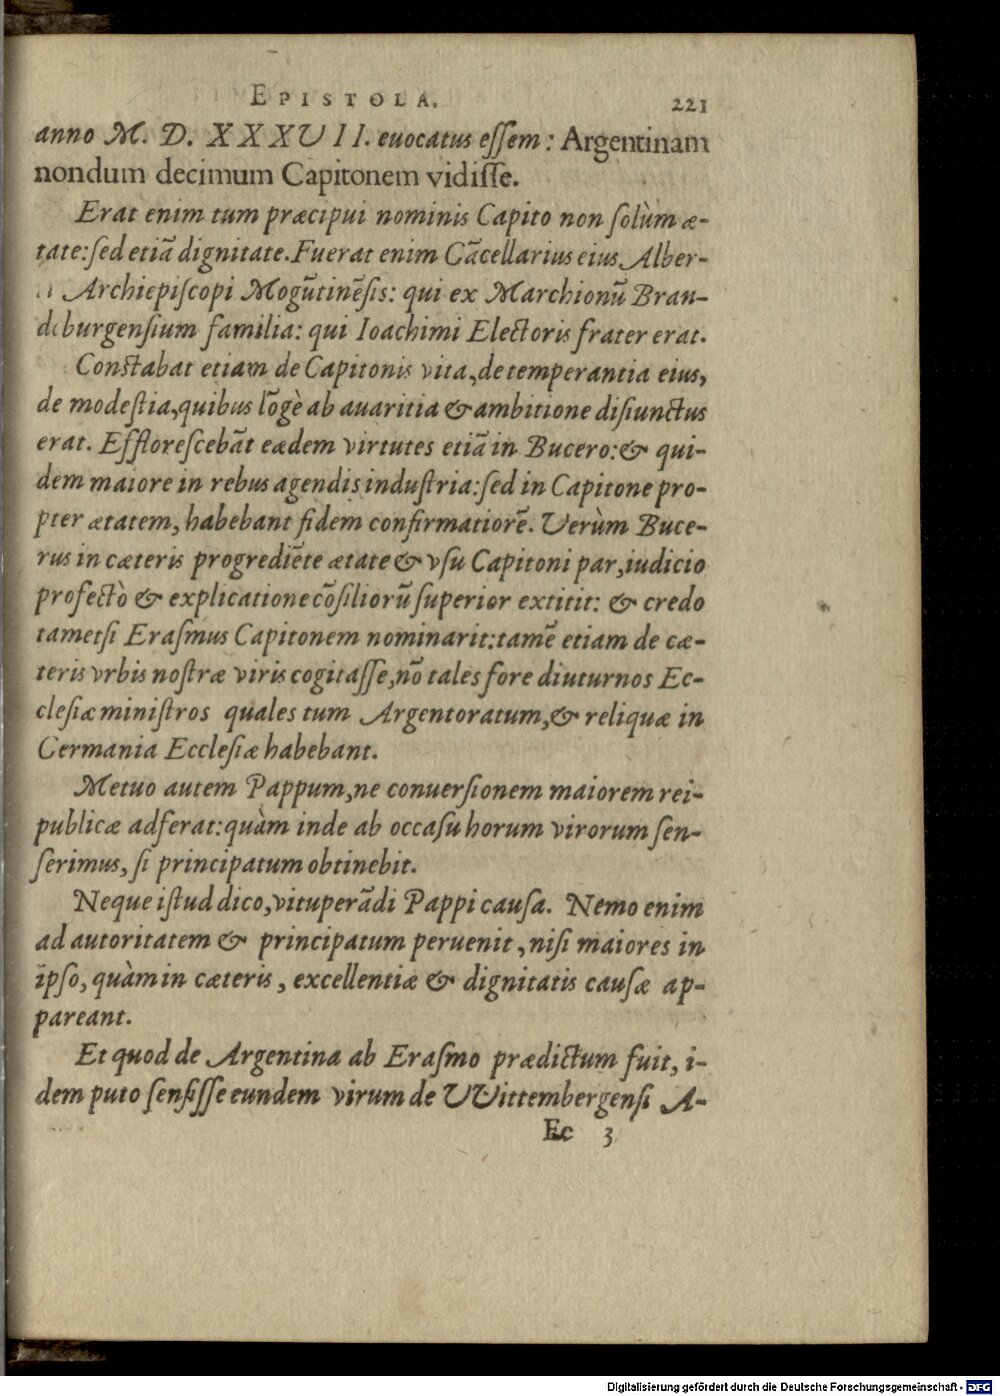 EPISTOLA. 221
anno M. D. XXXVII. euocatus eſſem: Argentinam
nondum decimum Capitonem vidiſſe.
Erat enim tum præcipui nominis Capito non ſolùm æ-
tate: ſed etiā dignitate. Fuerat enim Cācellarius eius Alber-
i Archiepiſcopi Mogūtinēſis: qui ex Marchionū Bran-
deburgenſium familia: qui Ioachimi Electoris frater erat.
Conſtabat etiam de Capitonis vita, de temperantia eius,
de modeſtia, quibus lōgè ab auaritia & ambitione diſiunctus
erat. Effloreſcebāt eædem virtutes etiā in Bucero: & qui-
dem maiore in rebus agendis induſtria: ſed in Capitone pro-
pter ætatem, habebant fidem confirmatiorē. Verùm Buce-
rus in cæteris progrediēte ætate & vſu Capitoni par, iudicio
profectò & explicatione cōſiliorū ſuperior extitit: & credo
tametſi Eraſmus Capitonem nominarit: tamē etiam de cæ-
teris vrbis noſtræ viris cogitaſſe, nō tales fore diuturnos Ec-
cleſiæ miniſtros quales tum Argentoratum, & reliquæ in
Germania Eccleſiæ habebant.
Metuo autem Pappum, ne conuerſionem maiorem rei-
publicæ adferat: quàm inde ab occaſu horum virorum ſen-
ſerimus, ſi principatum obtinebit.
Neque iſtud dico, vituperādi Pappi cauſa. Nemo enim
ad autoritatem & principatum peruenit, niſi maiores in
ipſo, quàm in cæteris, excellentiæ & dignitatis cauſæ ap-
pareant.
Et quod de Argentina ab Eraſmo prædictum fuit, i-
dem puto ſenſiſſe eundem virum de VVittembergenſi A-
Ee 3
Digitalisierung gefördert durch die Deutsche Forschungsgemeinschaft - DFG